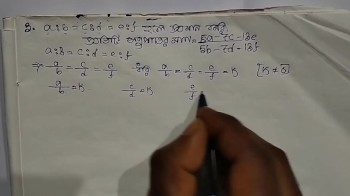 3. a:b = c:d = e:f হলে প্রমাণ করি
প্রত্যেকটি অনুপাতের মান = 5a-7c-13e / 5b-7d-13f
a:b = c:d = e:f
⇒ a/b = c/d = e/f a/b = c/d = e/f = K [K ≠ 0]
a/b = K c/d = K e/f